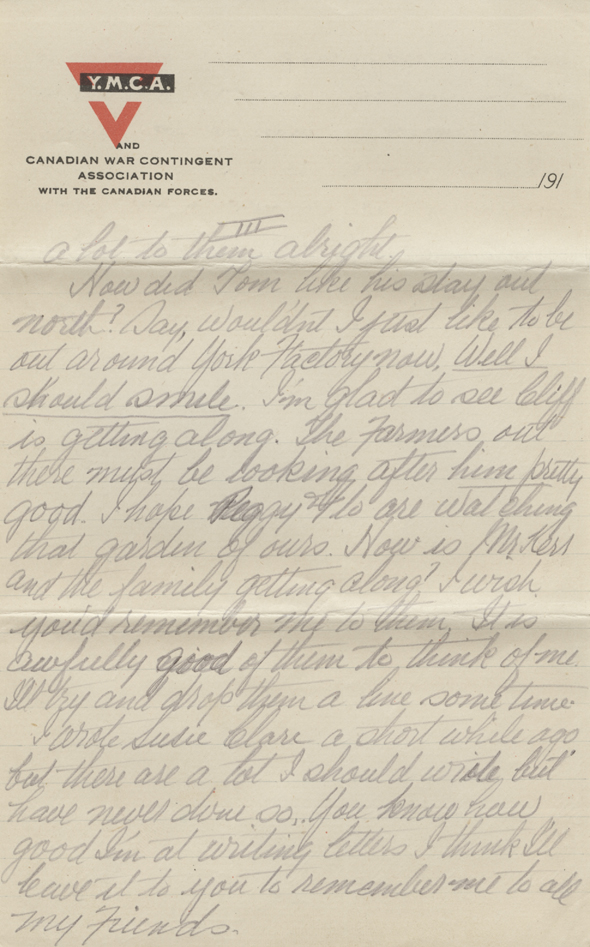 Y.M.C.A.
AND
CANADIAN WAR CONTINGENT
ASSOCIATION
WITH THE CANADIAN FORCES.
191
III
a lot to them alright.
How did Tom like his stay out
north? Say, wouldnt I just like to be
out around York Factory now. Well I
should smile. I'm glad to see Cliff
is getting along. The Farmers out
there must be looking after him pretty
good. I hope Peggy & Flo are watching
that garden of ours. How is Mr. Kerr
and the family getting along? I wish
you'd remember me to them. It is
awfully good of them to think of me.
I'll try and drop them a line some time.
I wrote Susie Clare a short while ago
but there are a lot I should wrote but
have never done so. You know how
good I'm at writing letters I think I'll
leave it to you to remember me to all
my Friends.